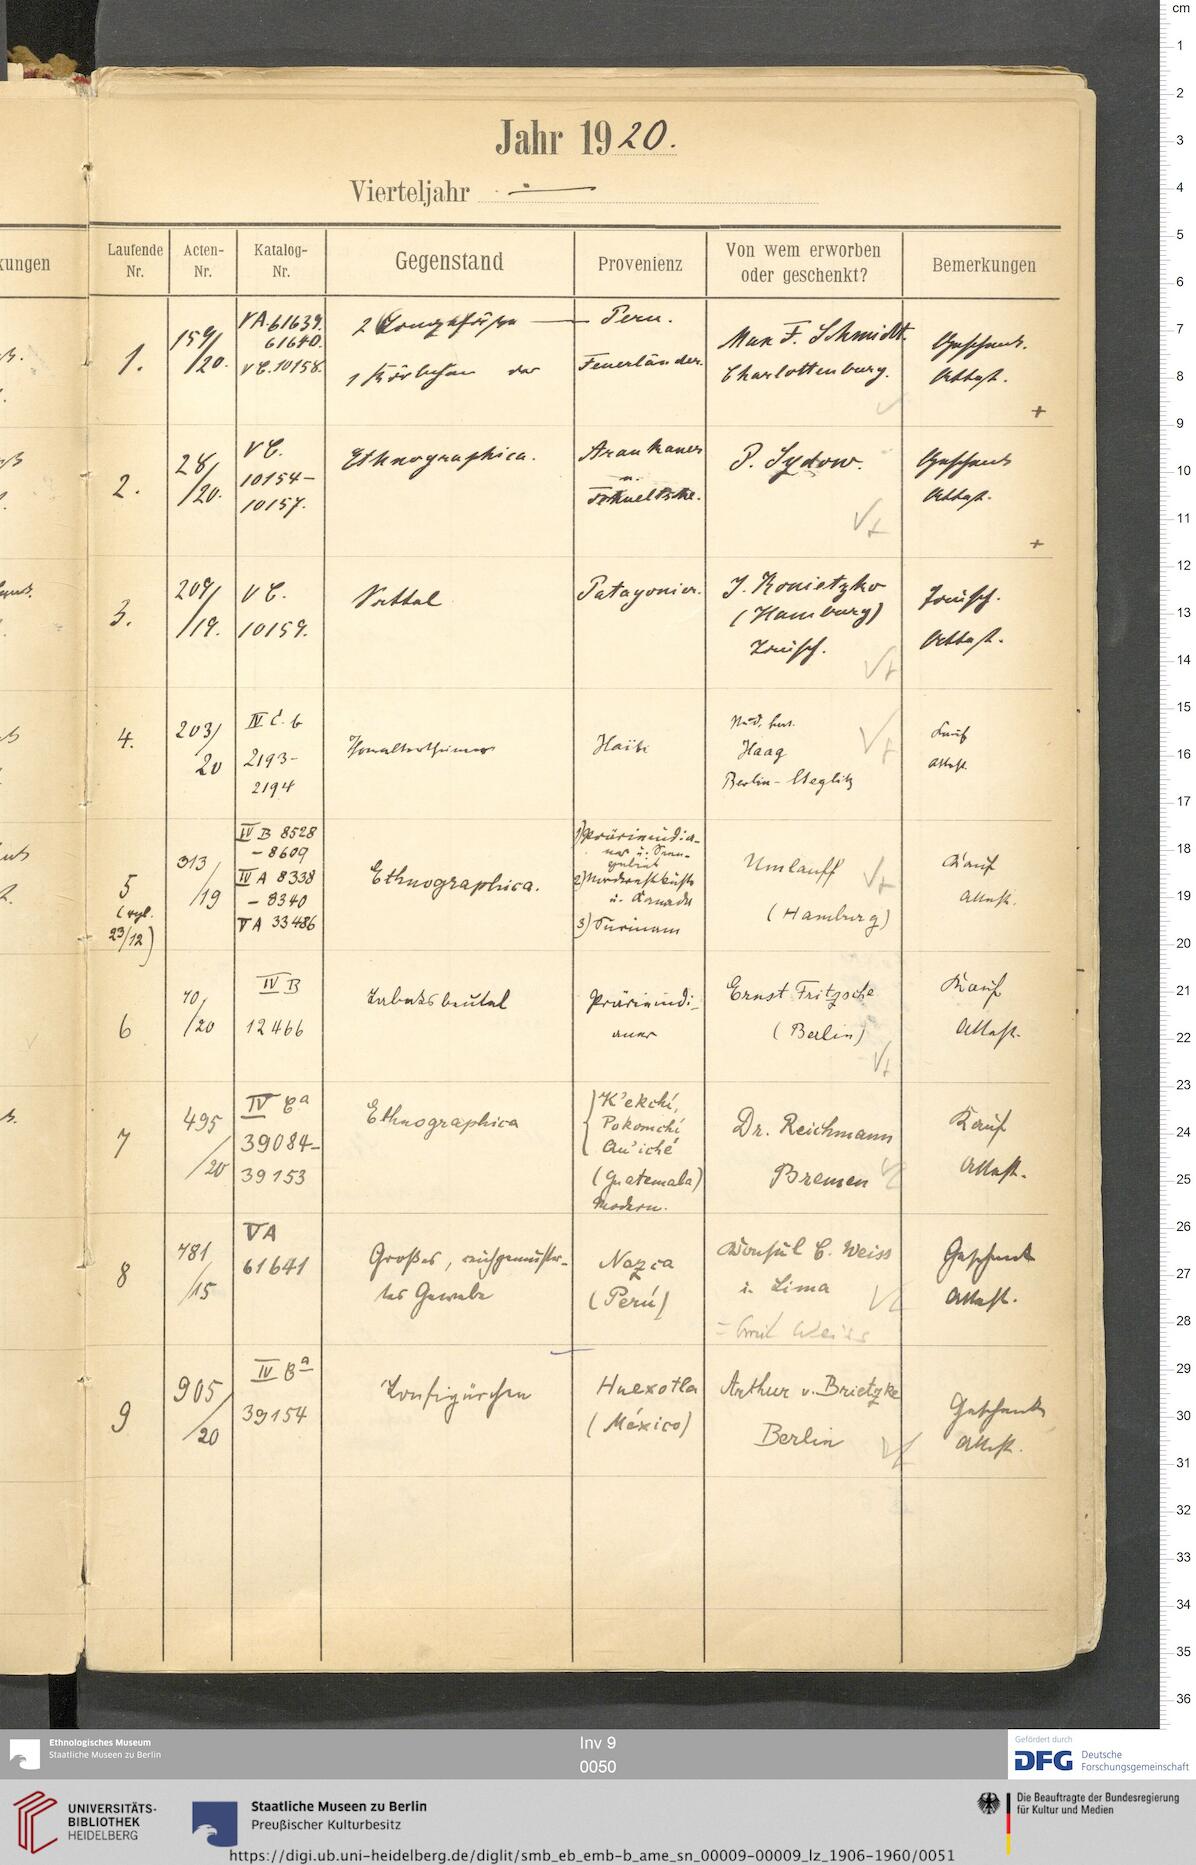 Jahr 1920.
Vierteljahr
Laufende Nr.
Acten-Nr.
Katalog-Nr.
Gegenstand
Provenienz
Von wem erworben oder geschenkt?
Bemerkungen
kungen
1.
159/20.
VA. 61639.
61640.
VC. 10158.
2
1 Körbchen der
Peru.
Feuerländer.
Max F. Schmidt.
Charlottenburg.
Geschenk.
+
2.
28/20.
VC.
10154-
10157.
Ethnographica.
Araukaner
u.
P. Sydow.
Geschenk
+
3.
209/19.
VC.
10159.
Sattel
Patagonier.
J. Konietzko
(Hamburg)
Tausch.
Tausch.
4.
203/20
IV C. b
2193-
2194
Haïti
Haag
Berlin-Steglitz
Kauf
5
(vgl.
23/12)
313/19
IV B 8528
- 8609
IV A 8338
- 8340
VA 33486
Ethnographica.
1) Prärieindia-
ner u.
2) Nordwestküste
u. Kanada
3) Surinam
Umlauff
(Hamburg)
Kauf
6
70/20
IV B
12466
Tabaksbeutel
Prärieindi-
aner
Ernst Fritzsche
(Berlin)
Kauf
7
495/20
IV Ca
39084-
39153
Ethnographica
K'ekchí,
Pokomchí
Qu'iché
(Guatemala)
Modern.
Dr. Reichmann
Bremen
Kauf
8
781/15
VA
61641
Großes, reichgemuster-
tes Gewebe
Nazca
(Perú)
Konsul C. Weiss
i. Lima
= Emil Weiss
Geschenk
9
905/20
IV Ca
39154
Tonfigürchen
Huexotla
(México)
Arthur v. Brietzke
Berlin
Geschenk
cm
1
2
3
4
5
6
7
8
9
10
11
12
13
14
15
16
17
18
19
20
21
22
23
24
25
26
27
28
29
30
31
32
33
34
35
36
Ethnologisches Museum
Staatliche Museen zu Berlin
Inv 9
0050
Gefördert durch
DFG Deutsche
Forschungsgemeinschaft
UNIVERSITÄTS-
BIBLIOTHEK
HEIDELBERG
Staatliche Museen zu Berlin
Preußischer Kulturbesitz
Die Beauftragte der Bundesregierung
für Kultur und Medien
https://digi.ub.uni-heidelberg.de/diglit/smb_eb_emb-b_ame_sn_00009-00009_lz_1906-1960/0051